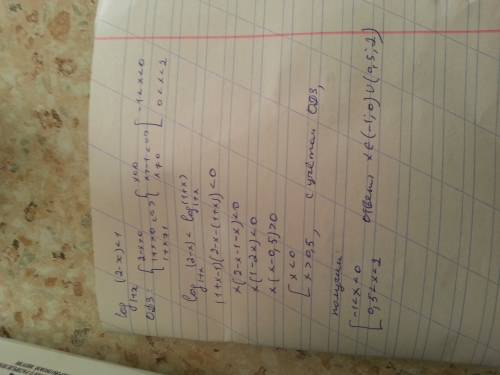 log₁₊ₓ(2-x)<1
ОДЗ: { 2-x>0 1+x>0 1+x≠1 <=> { x<2 x>-1 <=> x≠0 [ -1<x<0 0<x<2
log₁₊ₓ(2-x) < log₁₊ₓ(1+x)
(1+x-1)(2-x-(1+x))<0
x(2-x-1-x)<0
x(1-2x)<0
x(x-0,5)>0
[ x<0
x>0,5, с учётом ОДЗ,
получим
[ -1<x<0
0,5<x<2 ответ: x∈(-1;0)∪(0,5;2)